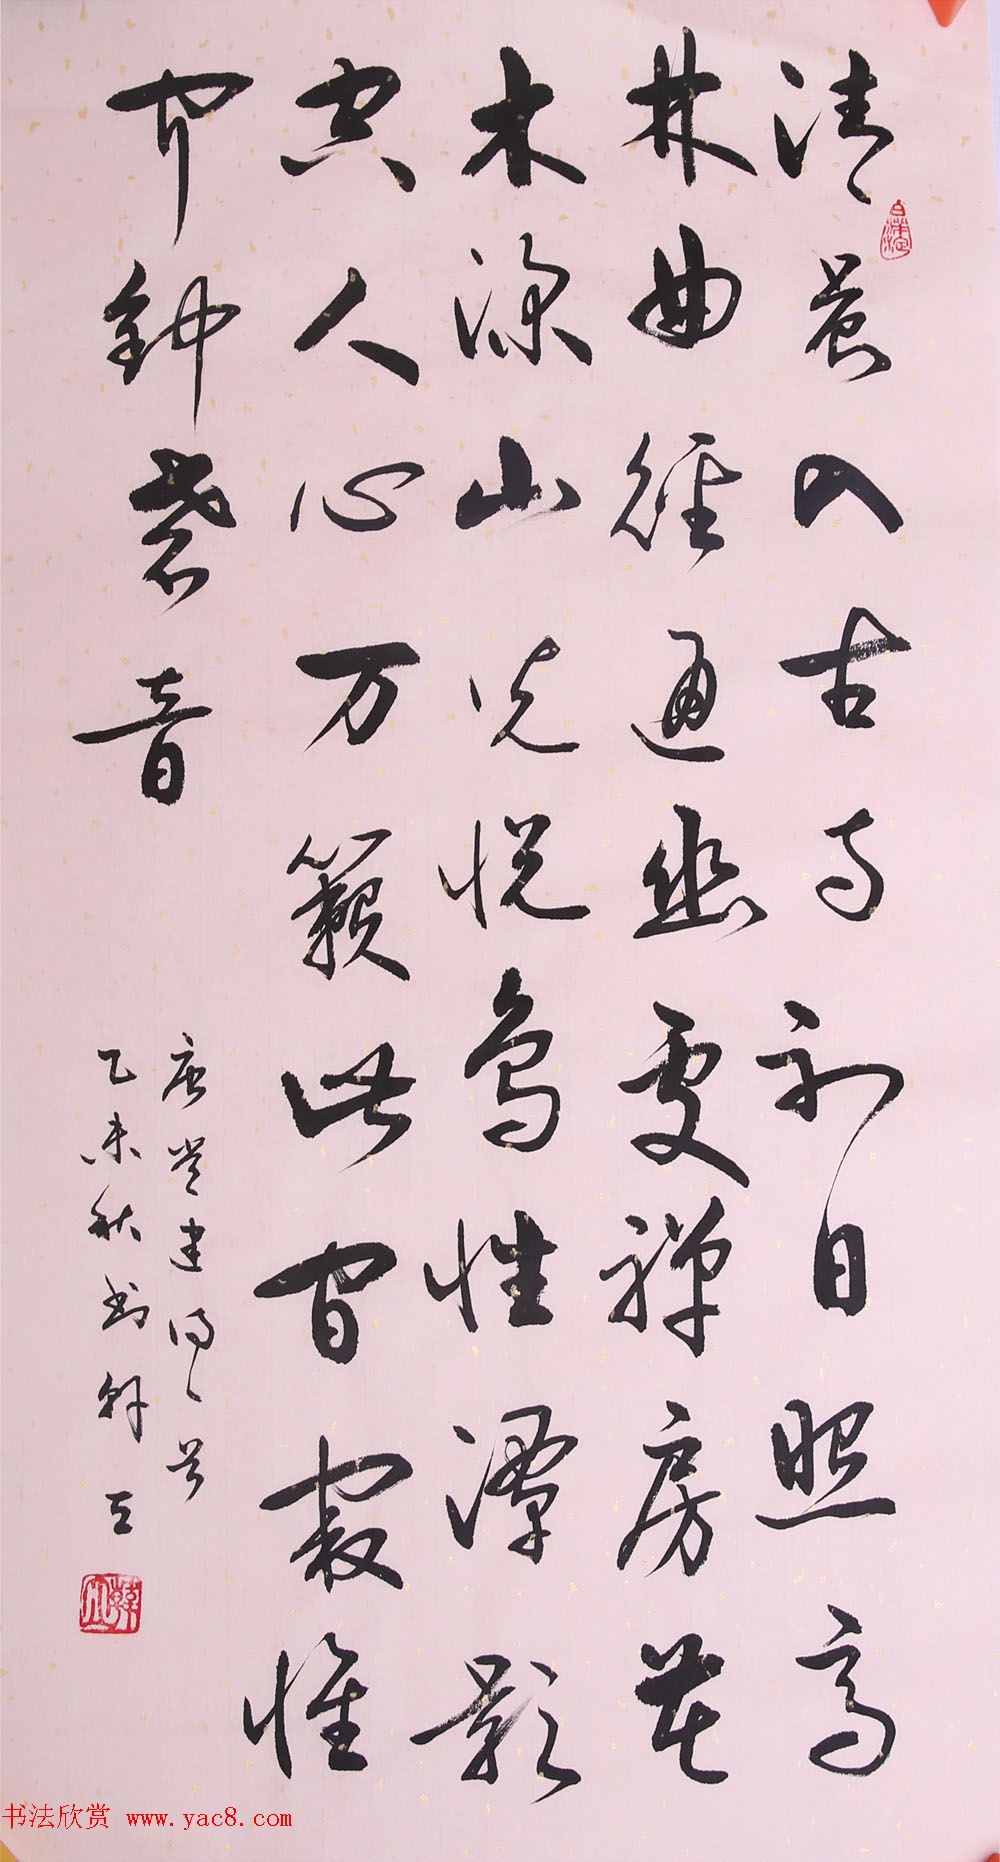 清晨入古寺初日照高
林曲徑通幽處禪房花
木深山光悦鳥性潭影
空人心万籟此皆寂惟
聞鐘磬音
唐常建詩一首
乙未秋书韩
书法欣赏 www.yac8.com